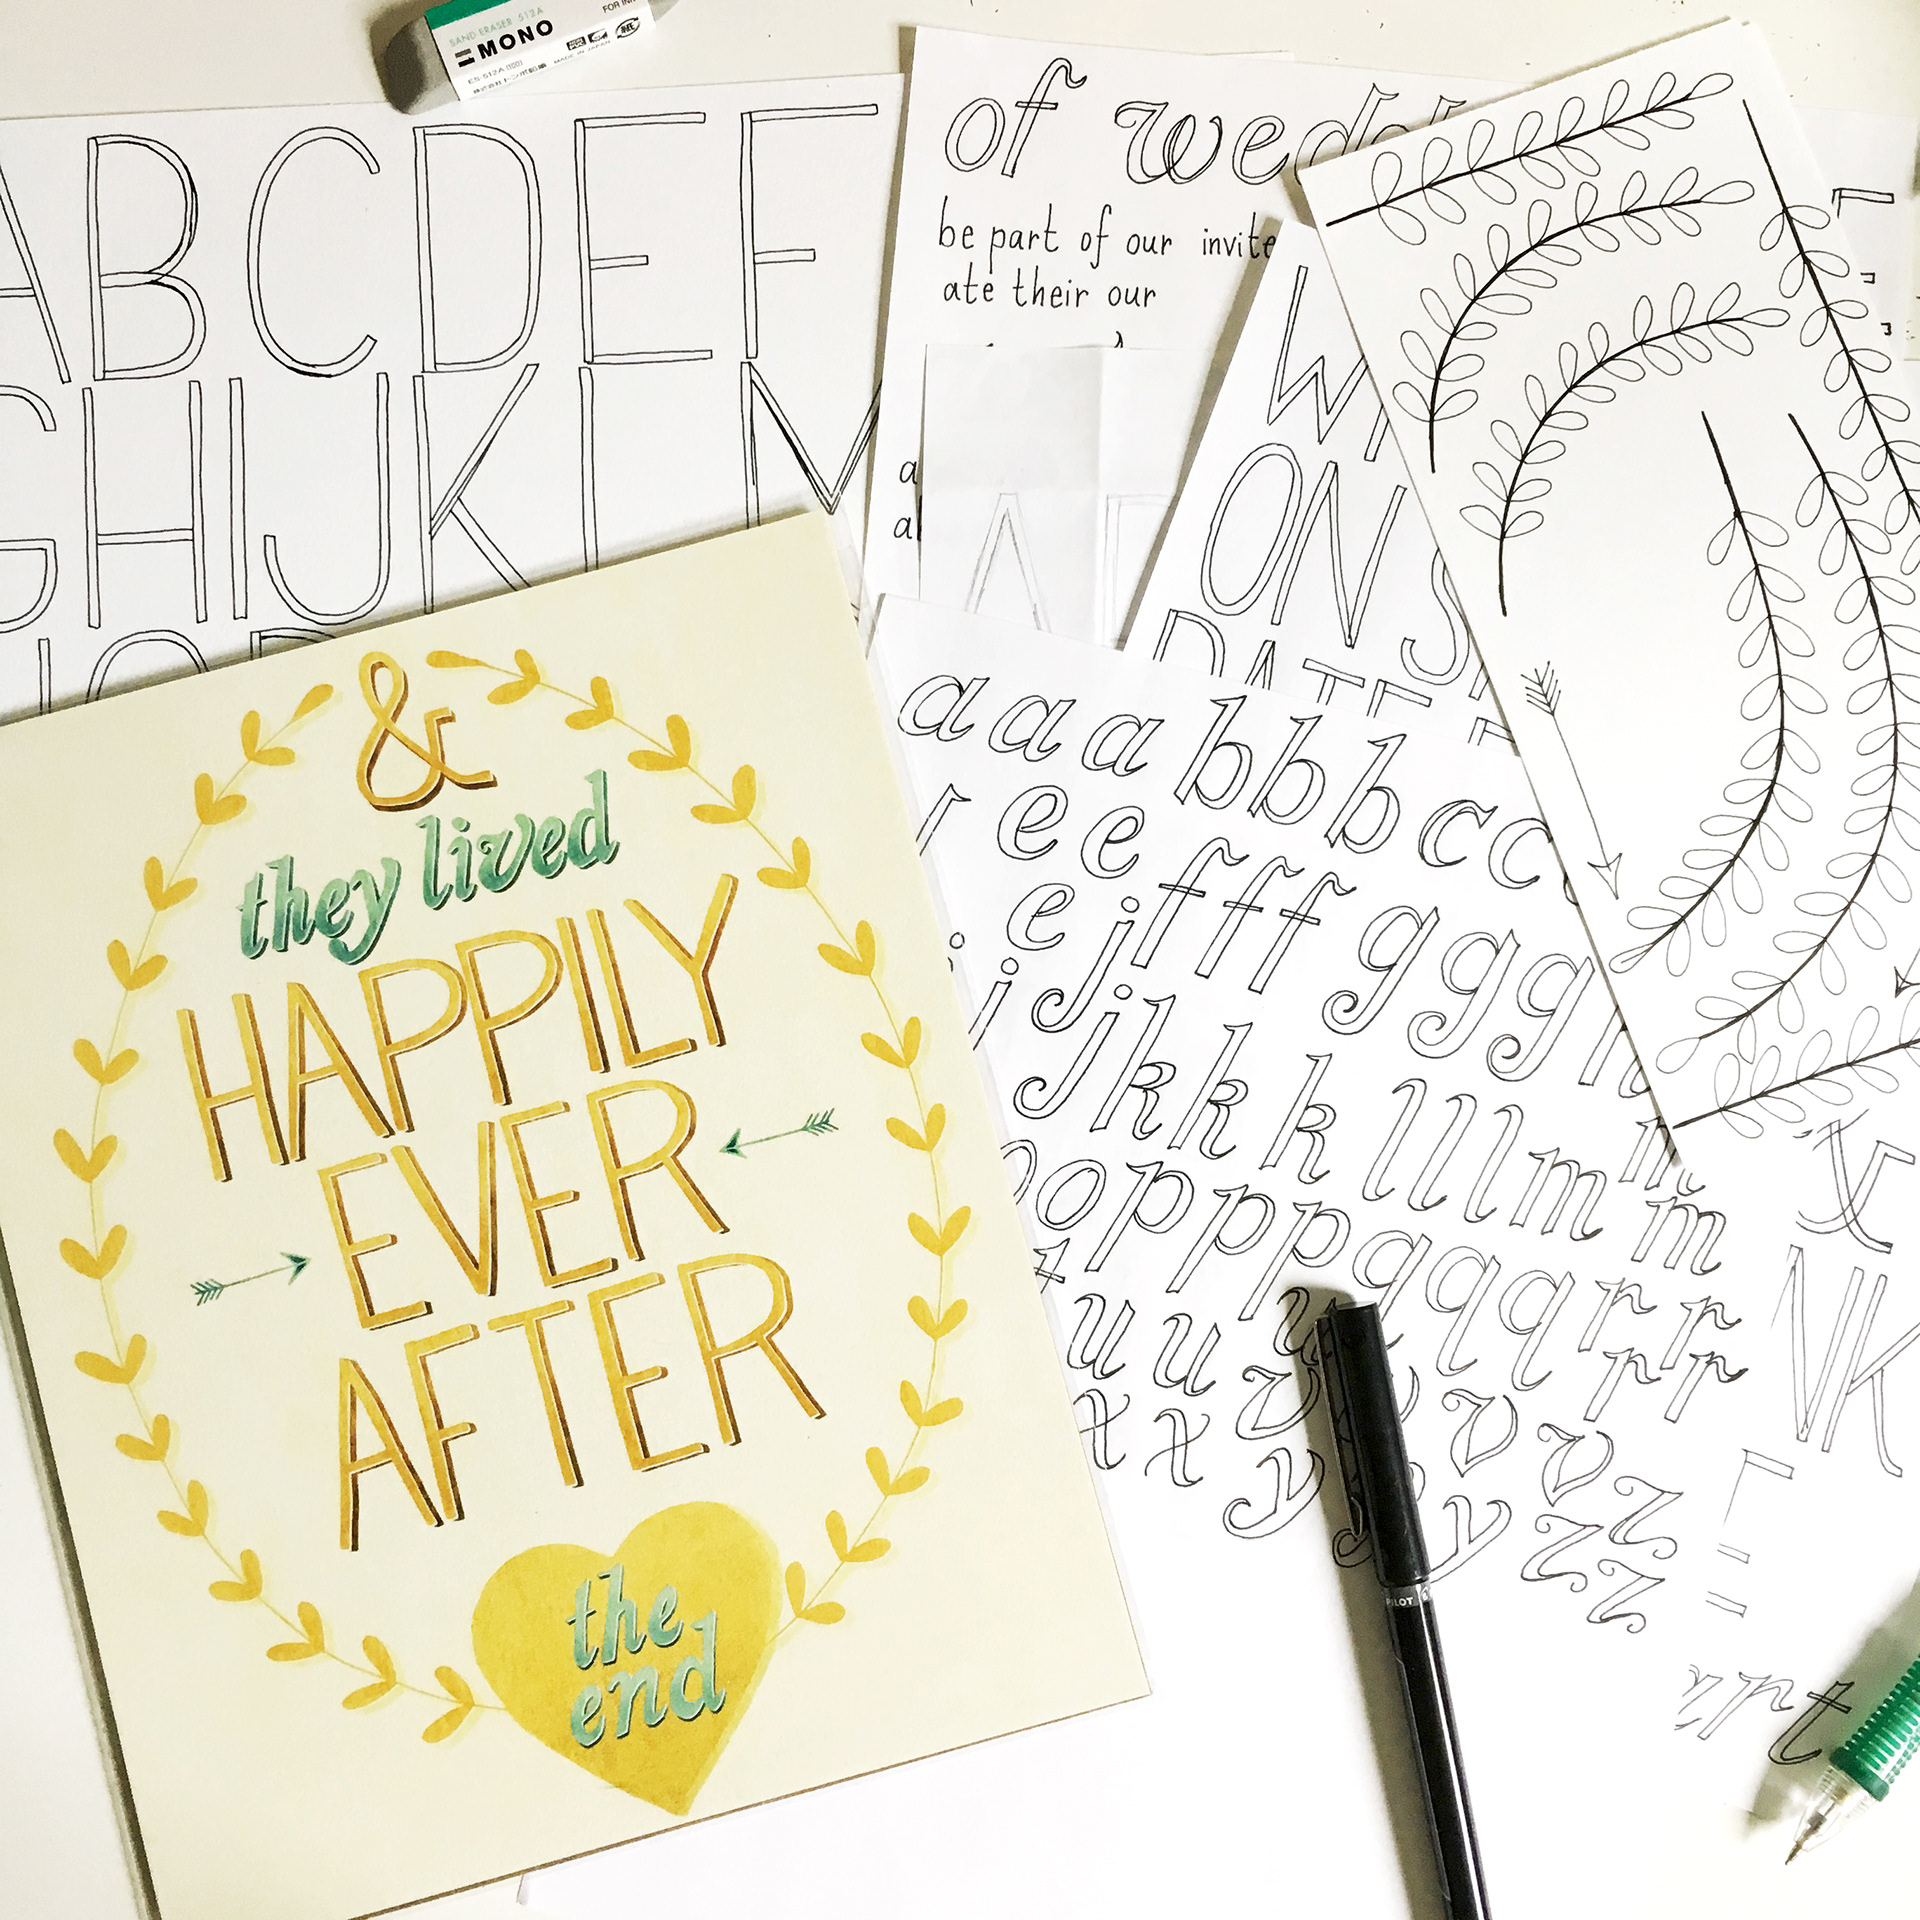 SAND ERASER 512A
MONO
FOR INK
ES-512A
MADE IN JAPAN
A B C D E F
G H I J K L M
of
be part of our invite
ate their our
ON
DATE
&
they lived
HAPPILY
EVER
AFTER
the
end
a a a b b b c c
e e f f f g g g
e j
j k k k l l l m m
m
o o p p p q q q r r
r r
u u u v v v v
x x y y y z z
z z
NK
PILOT